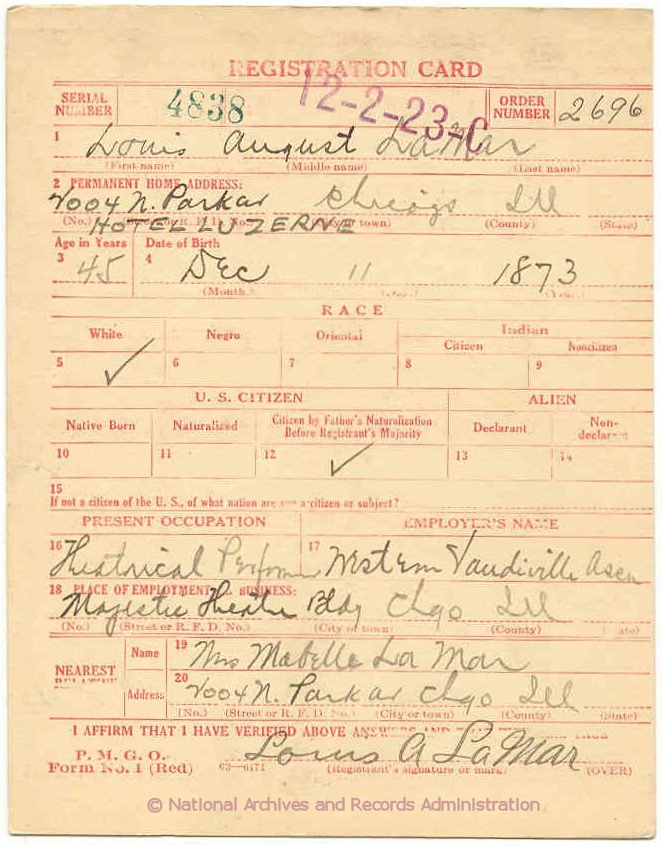 REGISTRATION CARD
SERIAL NUMBER 4838 12-2-23-C ORDER NUMBER 2696
1 Louis August LaMar
(First name) (Middle name) (Last name)
2 PERMANENT HOME ADDRESS:
2004 N. Park av Chicago Ill
(No.) (Street or R. F. D. No.) (City or town) (County) (State)
HOTEL LUZERNE
Age in Years Date of Birth
3 45 4 Dec 11 1873
(Month.) (Day.) (Year.)
RACE
White Negro Oriental Indian
Citizen Noncitizen
5 ✓ 6 7 8 9
U. S. CITIZEN ALIEN
Native Born Naturalized Citizen by Father's Naturalization Before Registrant's Majority Declarant Non-declarant
10 11 12 ✓ 13 14
15
If not a citizen of the U. S., of what nation are you a citizen or subject?
PRESENT OCCUPATION EMPLOYER'S NAME
16 Theatrical Performer 17 Western Vaudiville Assn
18 PLACE OF EMPLOYMENT OR BUSINESS:
Majestic Theatre Bldg Chgo Ill
(No.) (Street or R. F. D. No.) (City or town) (County) (State)
NEAREST RELATIVE Name 19 Mrs Mabelle La Mar
Address 20 2004 N. Park av Chgo Ill
(No.) (Street or R. F. D. No.) (City or town) (County) (State)
I AFFIRM THAT I HAVE VERIFIED ABOVE ANSWERS AND THAT THEY ARE TRUE
P. M. G. O.
Form No. 1 (Red) 03—6171 Louis A LaMar
(Registrant's signature or mark) (OVER)
© National Archives and Records Administration